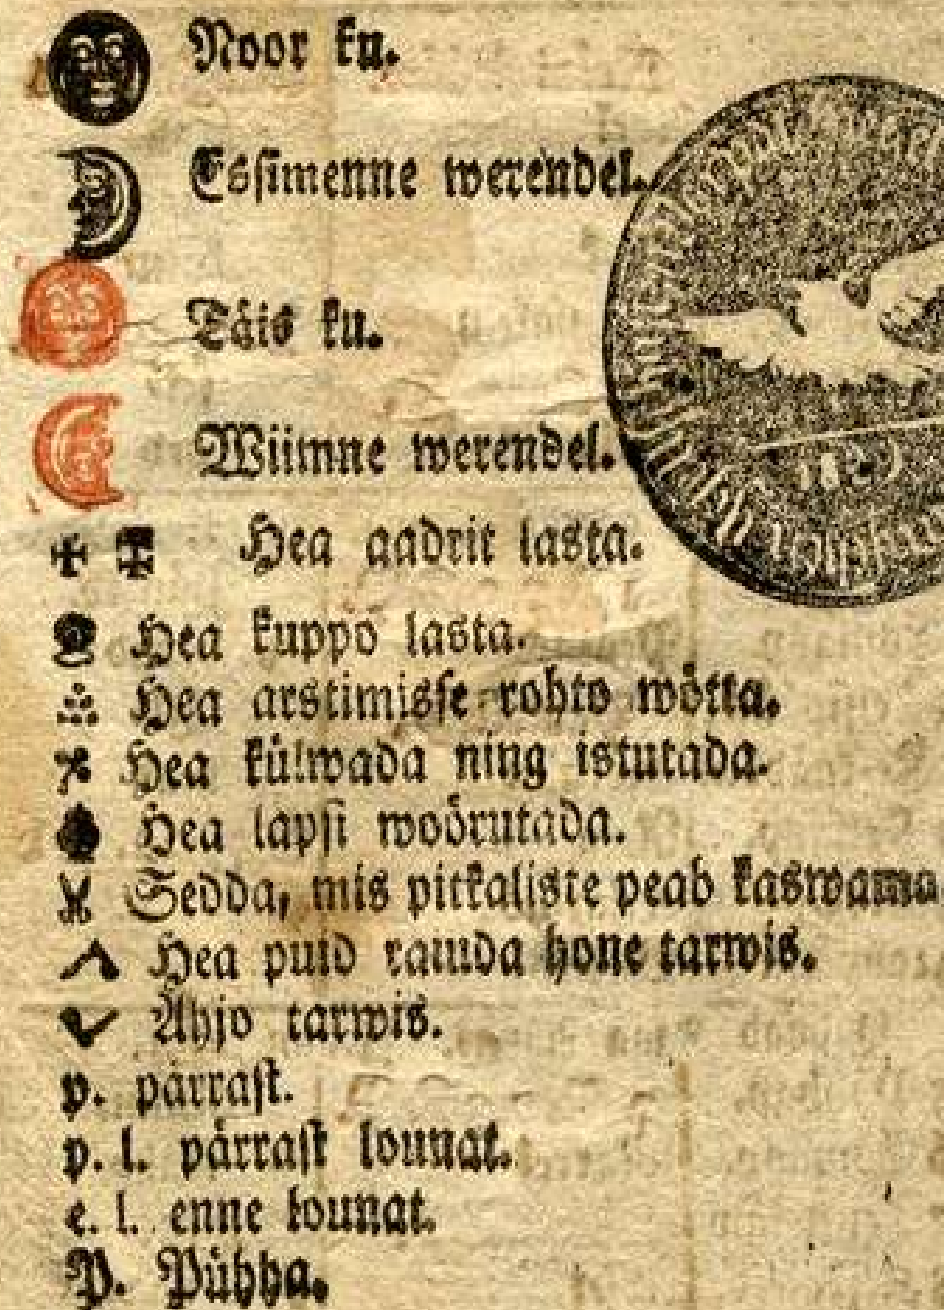 Noor ku.
Essimenne werendel.
Täis ku.
Wiimne werendel.
1829
Hea aadrit lasta.
Hea kuppo lasta.
Hea arstimisse rohto wötta.
Hea külwada ning istutada.
Hea lapsi woörutada.
Sedda, mis pitkaliste peab kaswama
Hea puid raiuda hone tarwis.
Ahjo tarwis.
p. pärrast.
p. l. pärrast lounat.
e. l. enne lounat.
P. Pühha.